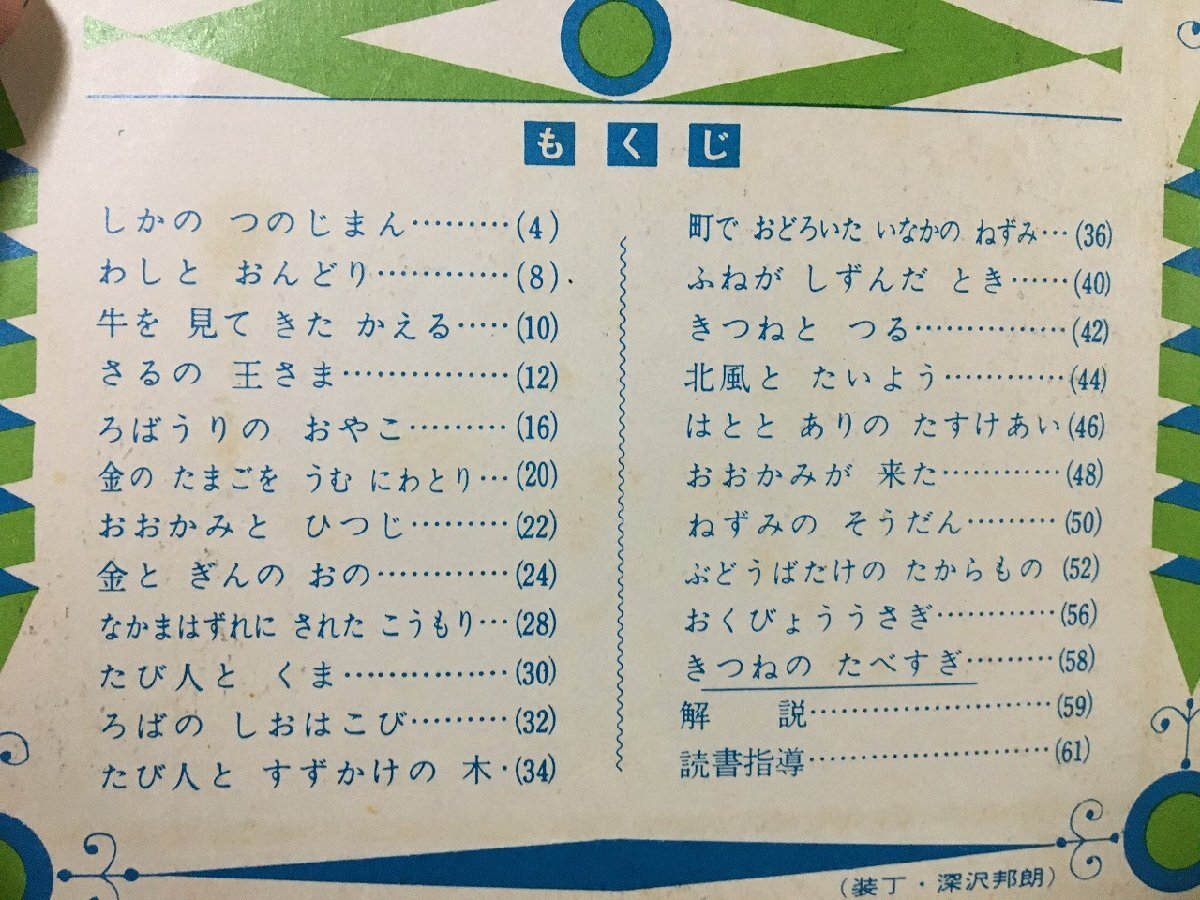 もくじ
しかの つのじまん………(4)
わしと おんどり…………(8)
牛を 見て きた かえる……(10)
さるの 王さま……………(12)
ろばうりの おやこ………(16)
金の たまごを うむ にわとり…(20)
おおかみと ひつじ………(22)
金と ぎんの おの…………(24)
なかまはずれに された こうもり…(28)
たび人と くま……………(30)
ろばの しおはこび………(32)
たび人と すずかけの 木・(34)
町で おどろいた いなかの ねずみ…(36)
ふねが しずんだ とき……(40)
きつねと つる……………(42)
北風と たいよう…………(44)
はとと ありの たすけあい(46)
おおかみが 来た…………(48)
ねずみの そうだん………(50)
ぶどうばたけの たからもの (52)
おくびょううさぎ…………(56)
きつねの たべすぎ………(58)
解 説……………………(59)
読書指導……………………(61)
(装丁・深沢邦朗)